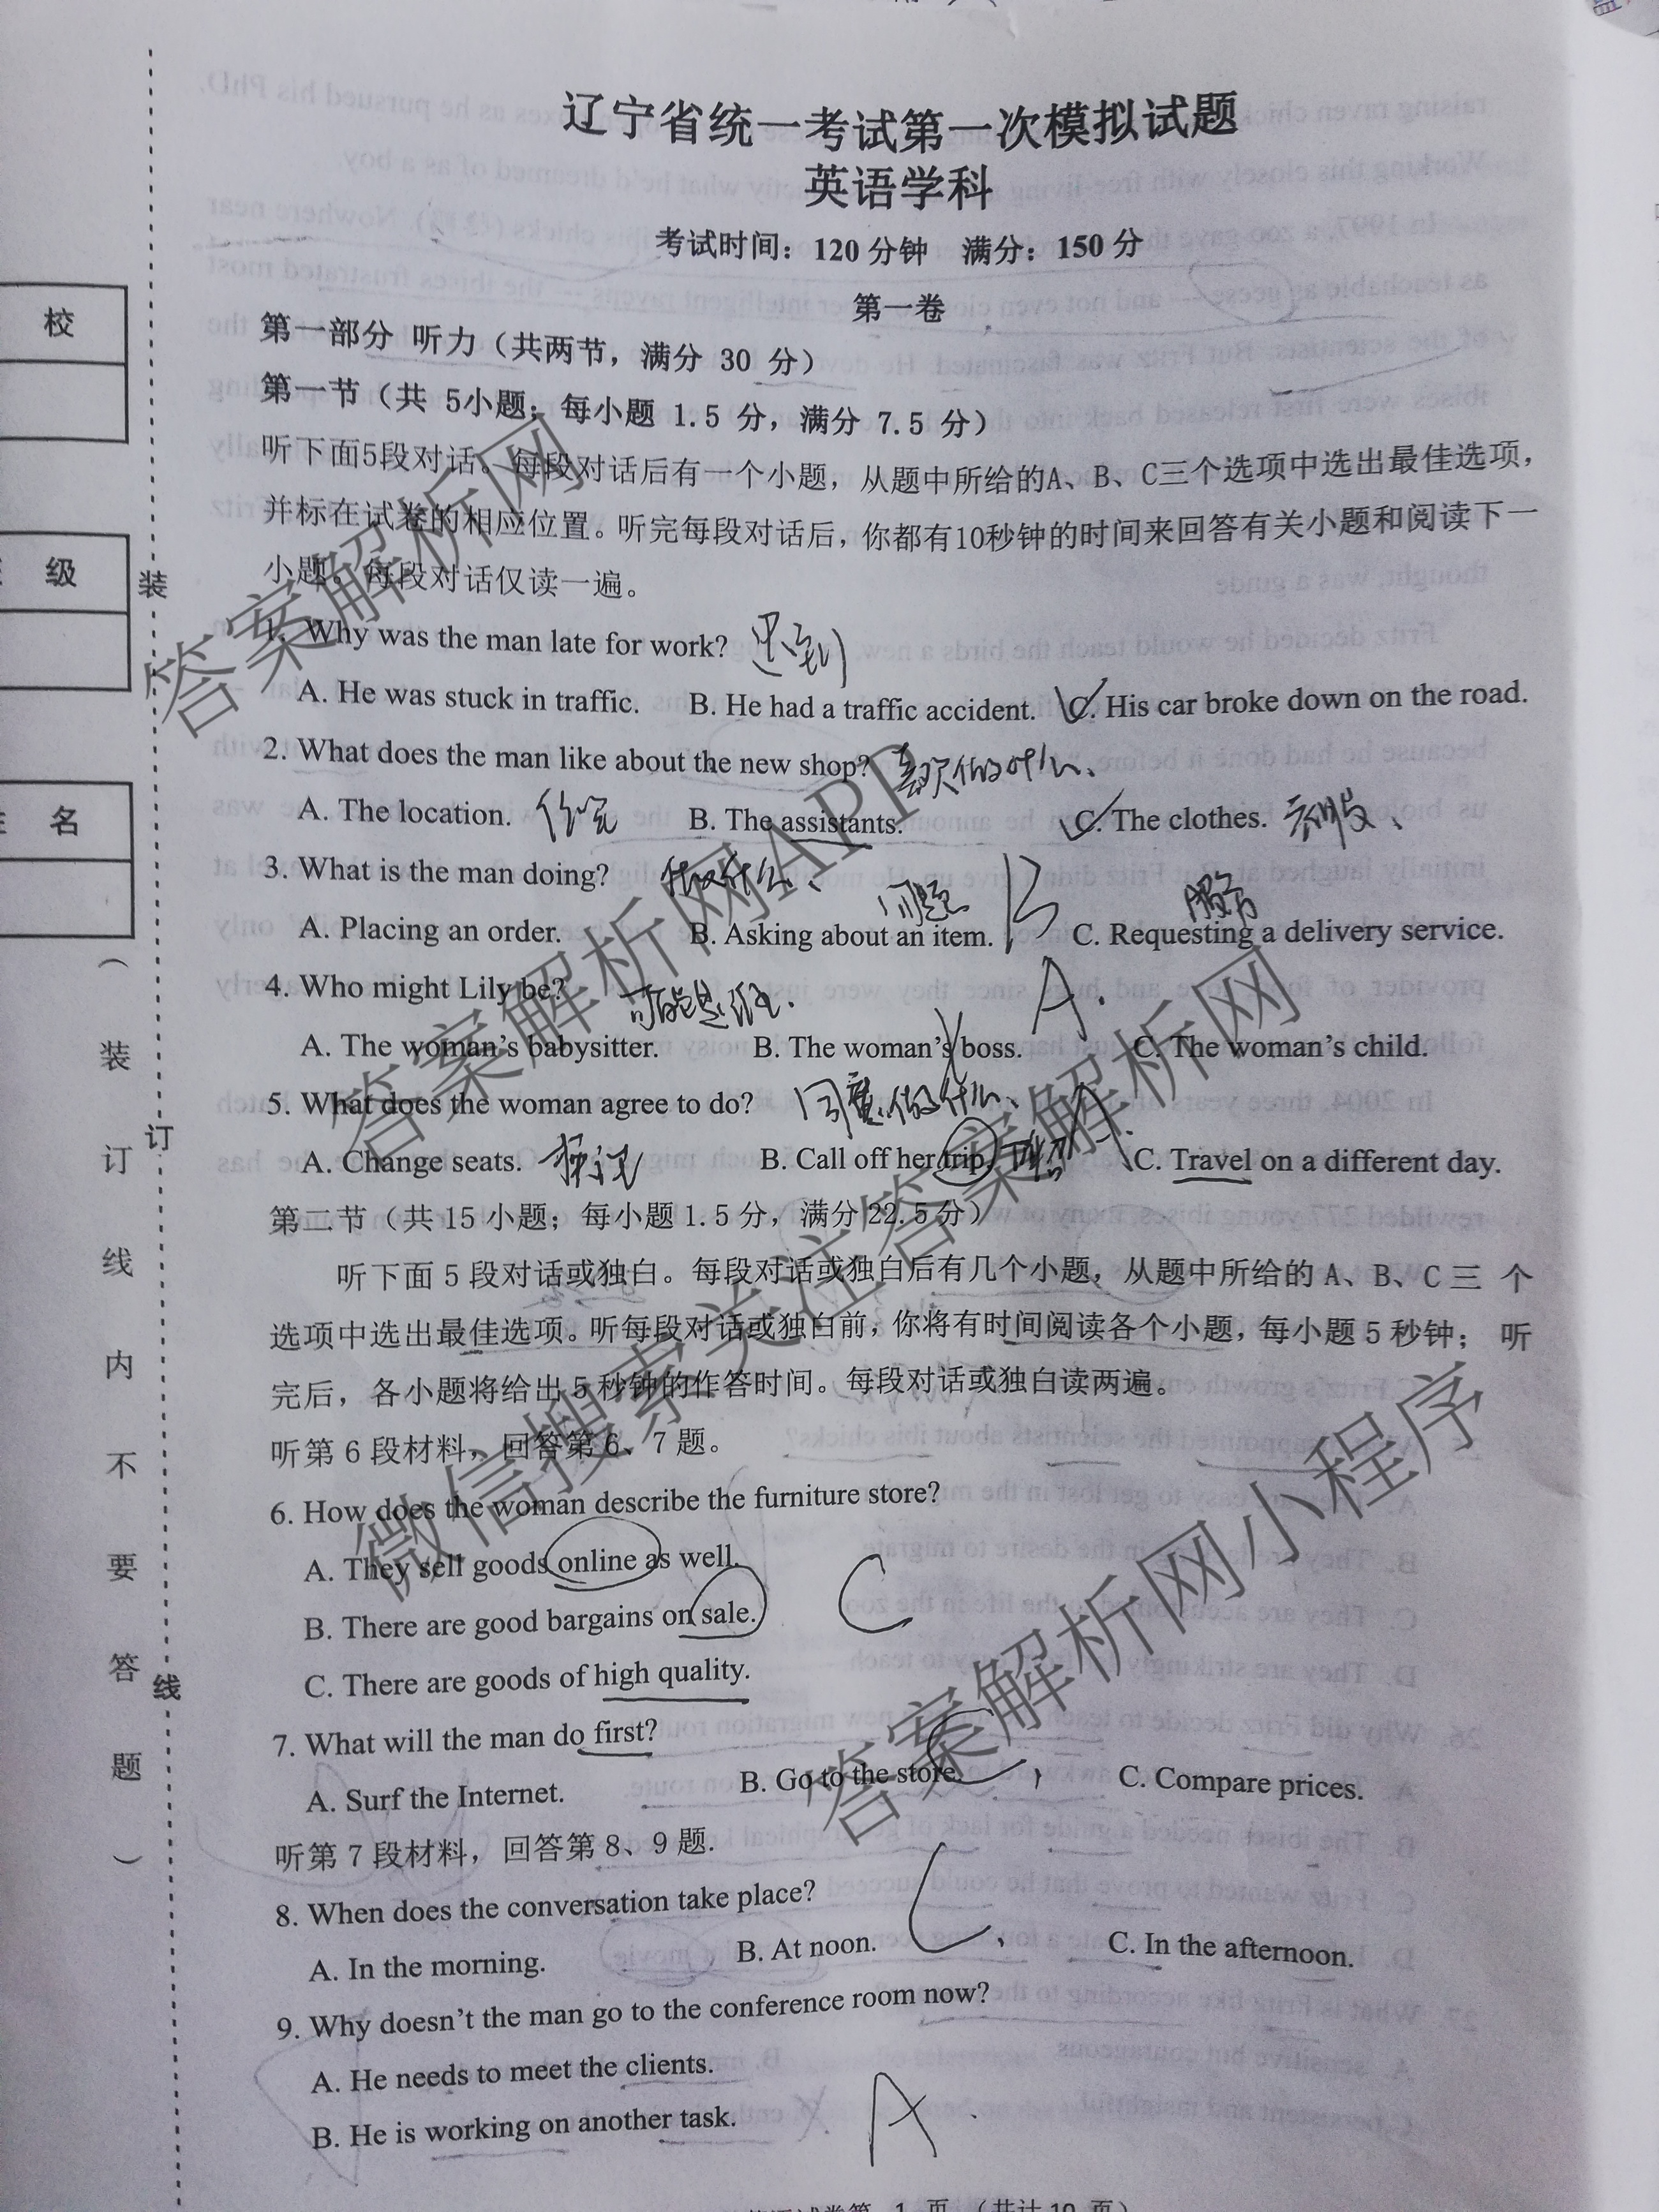 辽宁省统一考试第一次模拟试题
英语学科
考试时间：120 分钟 满分：150 分
第一卷
第一部分 听力（共两节，满分 30 分）
第一节（共 5小题；每小题 1.5 分，满分 7.5 分）
听下面5段对话。每段对话后有一个小题，从题中所给的A、B、C三个选项中选出最佳选项，
并标在试卷的相应位置。听完每段对话后，你都有10秒钟的时间来回答有关小题和阅读下一
小题。每段对话仅读一遍。
1. Why was the man late for work? 迟到
A. He was stuck in traffic. B. He had a traffic accident. C. His car broke down on the road.
2. What does the man like about the new shop? 喜欢做什么、
A. The location. 位置 B. The assistants. C. The clothes. 衣服、
3. What is the man doing? 做什么、
A. Placing an order. B. Asking about an item. 问题 B C. Requesting a delivery service. 服务
4. Who might Lily be? 可能是谁. A.
A. The woman's babysitter. B. The woman's boss. C. The woman's child.
5. What does the woman agree to do? 同意做什么、 A.
A. Change seats. B. Call off her trip. C. Travel on a different day.
第二节（共 15 小题；每小题 1.5 分，满分 22.5 分）
听下面 5 段对话或独白。每段对话或独白后有几个小题，从题中所给的 A、B、C 三 个
选项中选出最佳选项。听每段对话或独白前，你将有时间阅读各个小题，每小题 5 秒钟； 听
完后，各小题将给出 5 秒钟的作答时间。每段对话或独白读两遍。
听第 6 段材料，回答第 6、7 题。
6. How does the woman describe the furniture store?
A. They sell goods online as well.
B. There are good bargains on sale. C
C. There are goods of high quality.
7. What will the man do first?
A. Surf the Internet. B. Go to the store. C、 C. Compare prices.
听第 7 段材料，回答第 8、9 题.
8. When does the conversation take place?
A. In the morning. B. At noon. C、 C. In the afternoon.
9. Why doesn't the man go to the conference room now?
A. He needs to meet the clients.
B. He is working on another task. A.
英语试卷第 1 页 （共计 10 页）
校
级
姓 名
（装订线内不要答题）
装
订
线
答案解析网
答案解析网APP
微信搜索关注答案解析网
答案解析网小程序